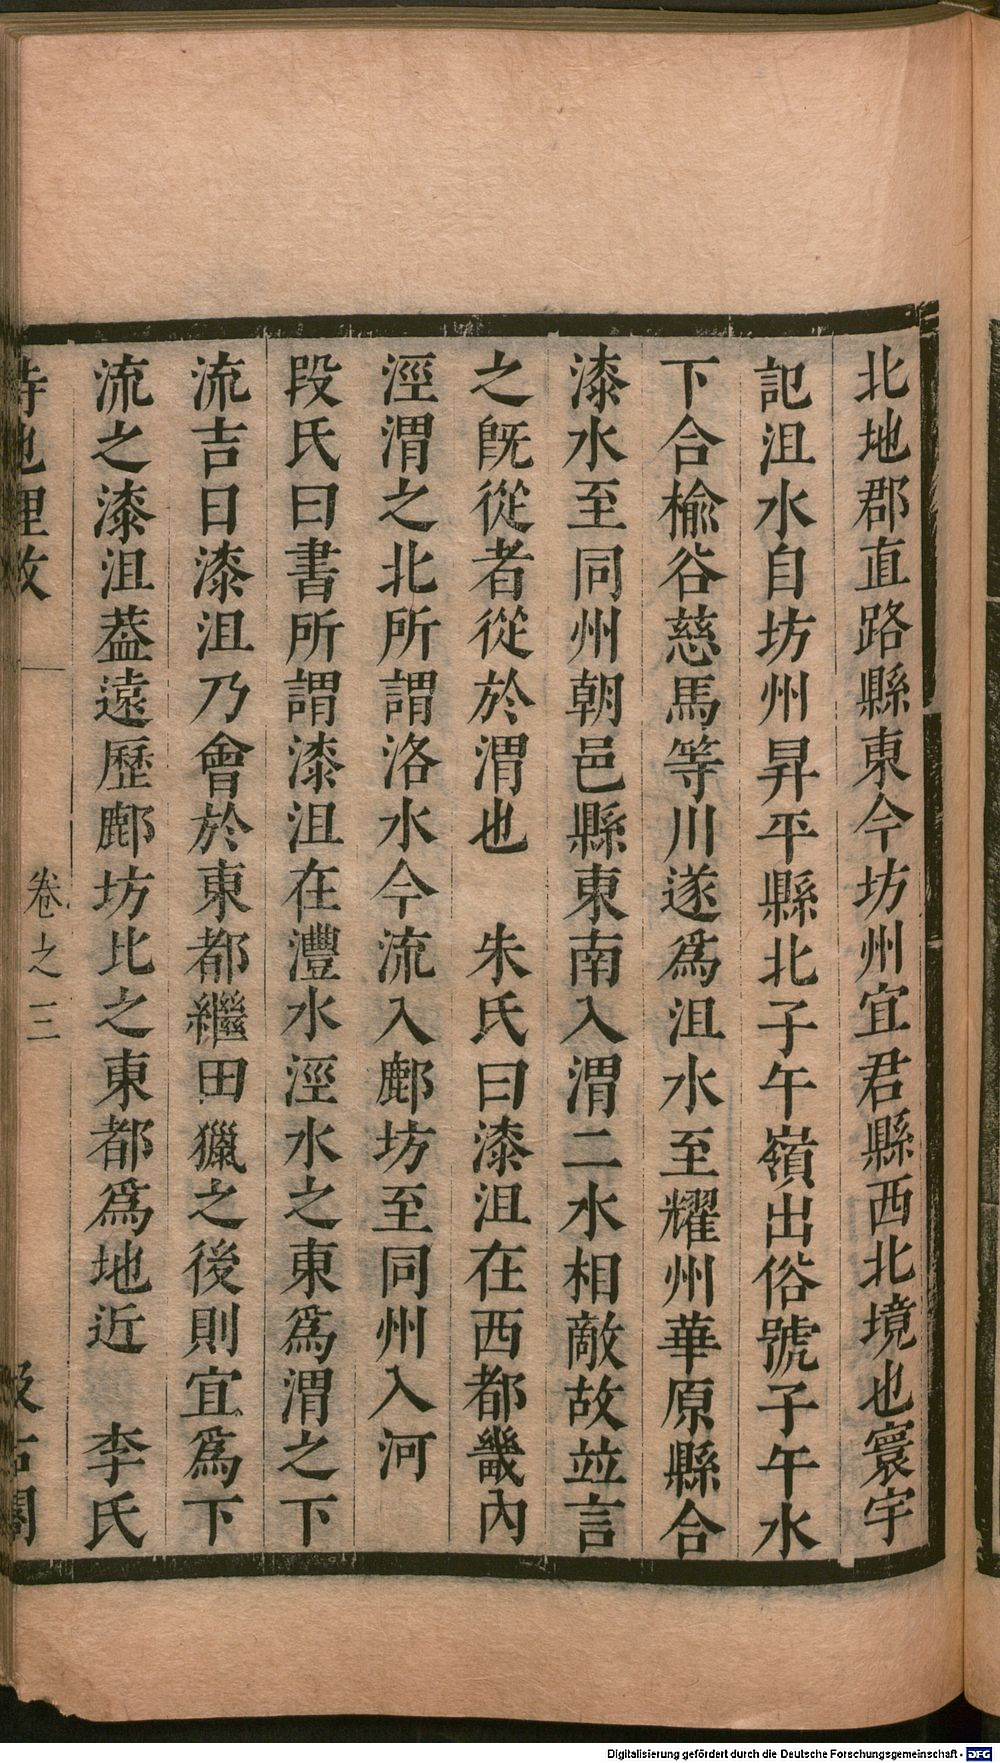 北地郡直路縣東今坊州宜君縣西北境也寰宇
記沮水自坊州昇平縣北子午嶺出俗號子午水
下合榆谷慈馬等川遂爲沮水至耀州華原縣合
漆水至同州朝邑縣東南入渭二水相敵故竝言
之旣從者從於渭也　朱氏曰漆沮在西都畿內
涇渭之北所謂洛水今流入鄜坊至同州入河
段氏曰書所謂漆沮在灃水涇水之東爲渭之下
流吉日漆沮乃會於東都繼田獵之後則宜爲下
流之漆沮葢遠歷鄜坊比之東都爲地近　李氏
詩地理攷　卷之三　汲古閣
Digitalisierung gefördert durch die Deutsche Forschungsgemeinschaft - DFG